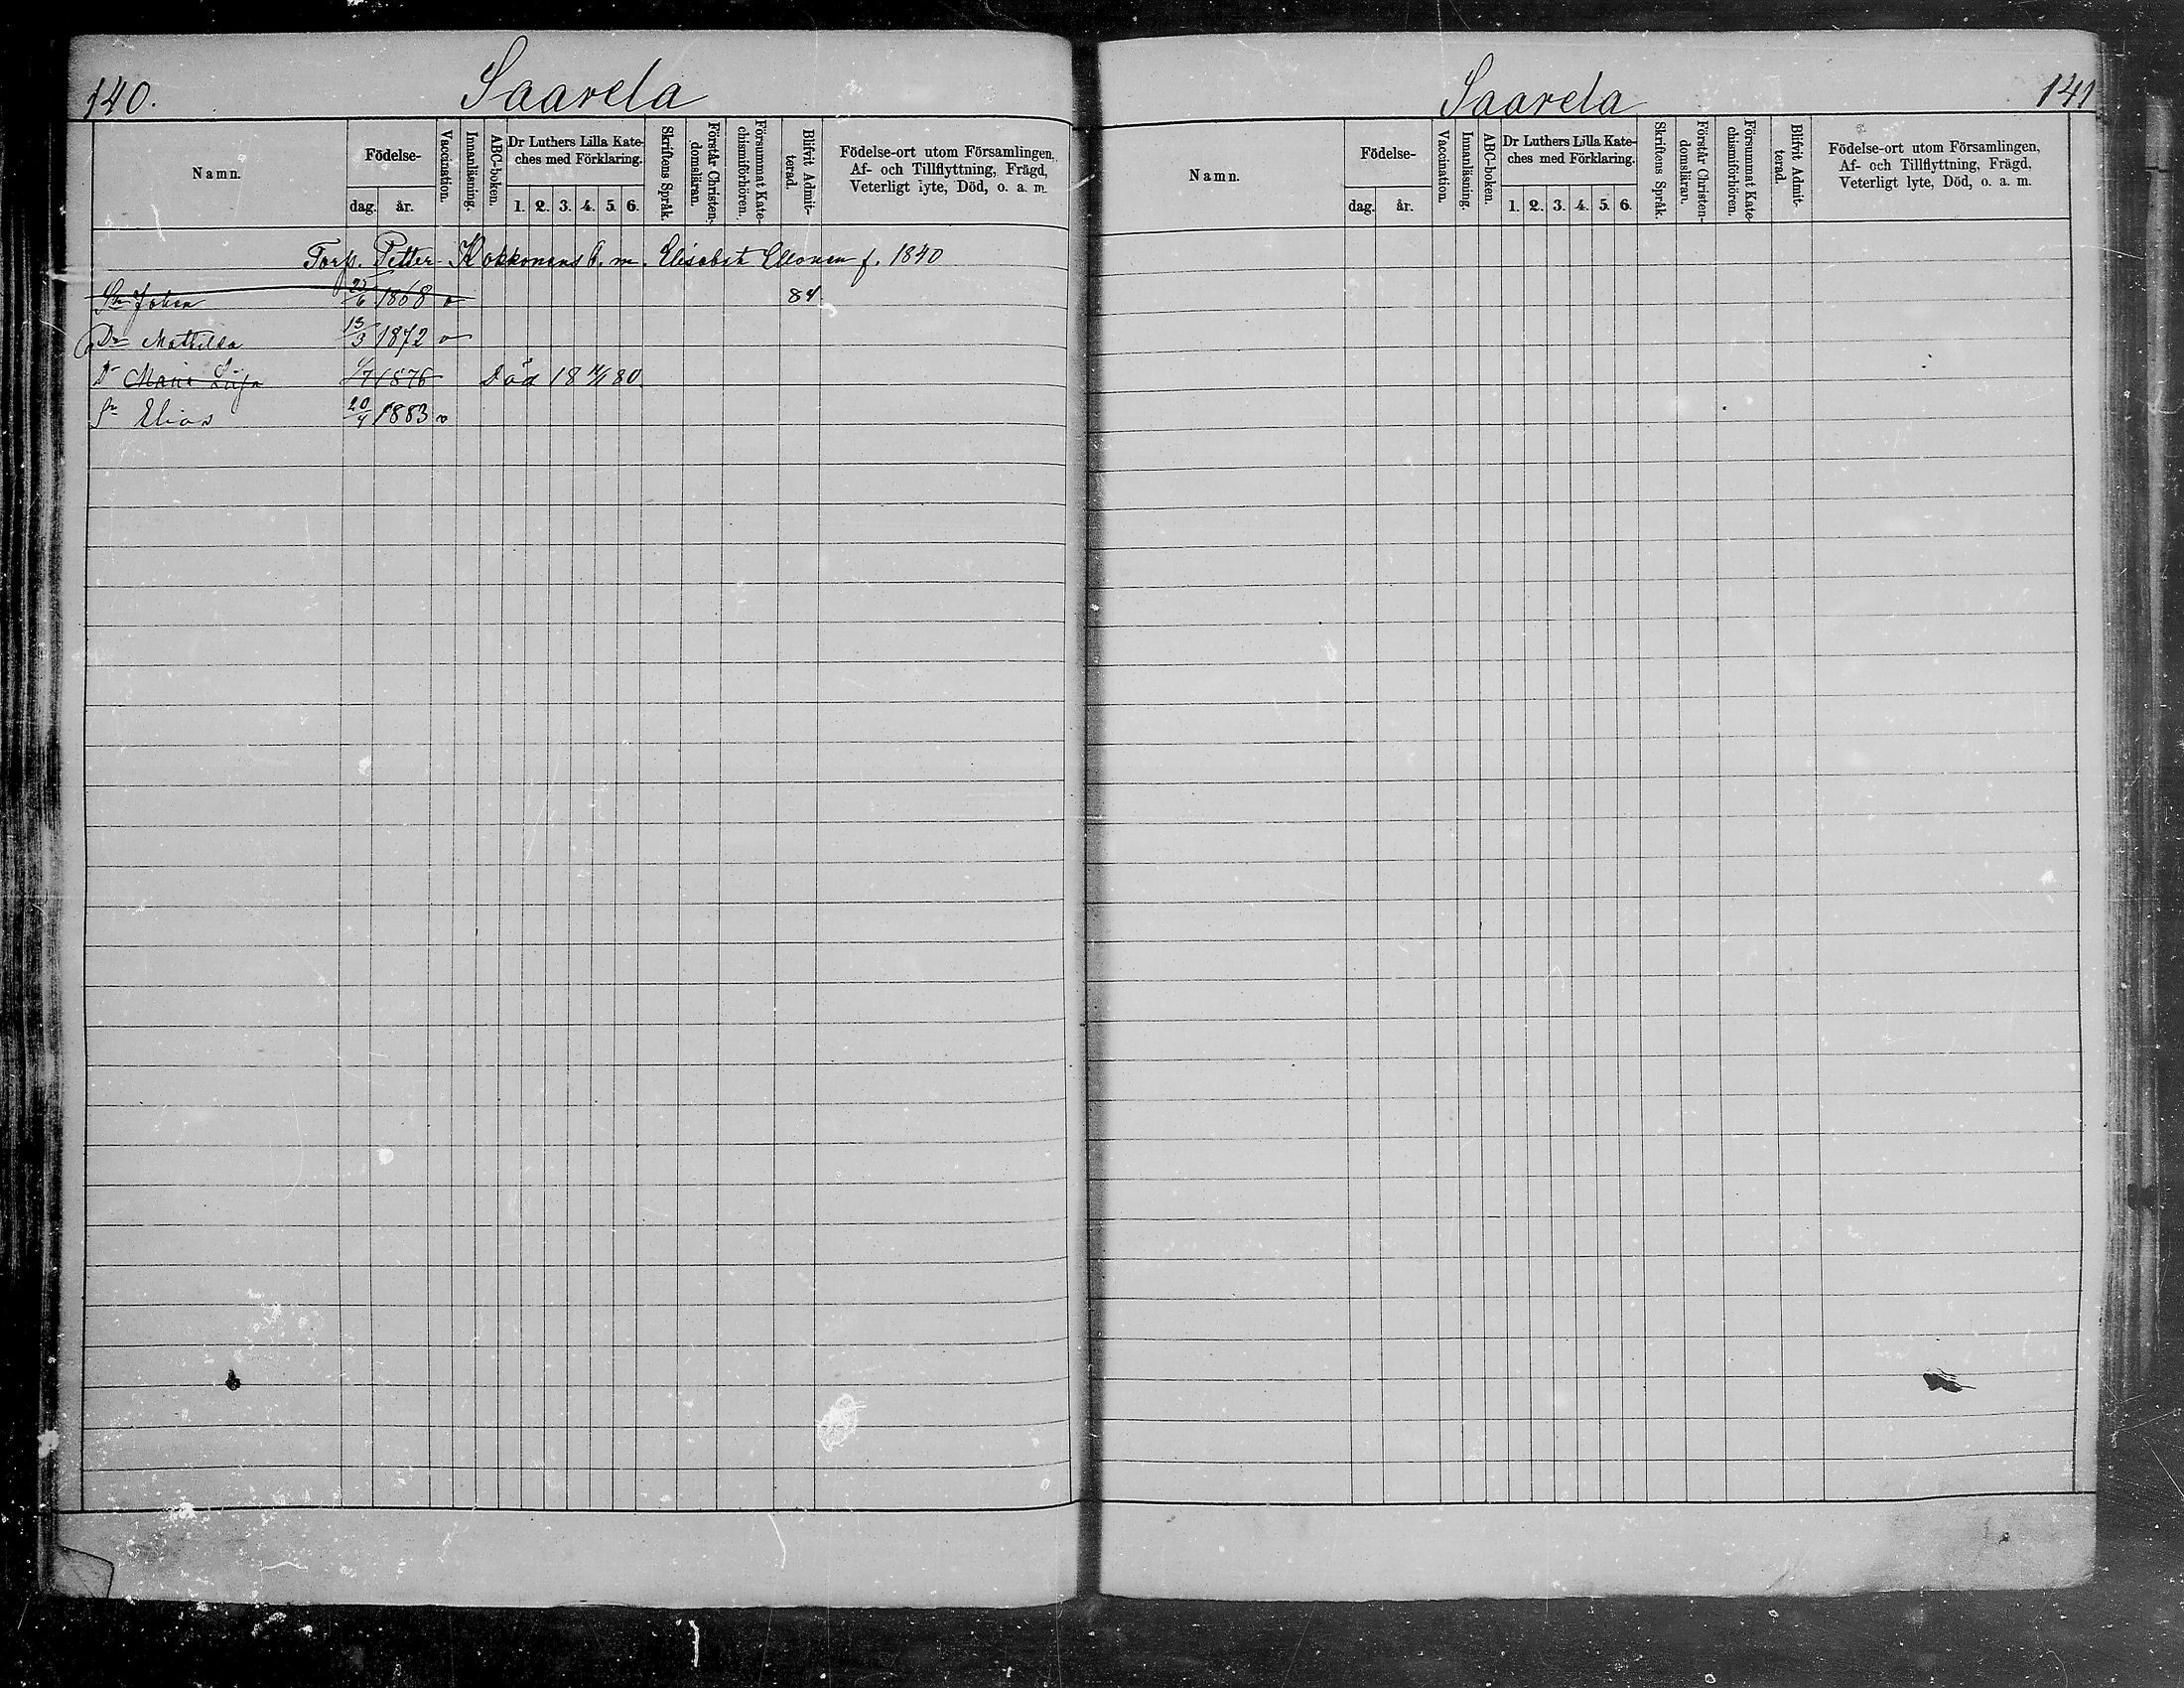 140.
Saarela
Namn.
Födelse-
dag.
år.
Vaccination.
Innanläsning.
ABC-boken.
Dr Luthers Lilla Kate-
ches med Förklaring.
1. 2. 3. 4. 5. 6.
Skriftens Språk.
Förstår Christen-
domsläran.
Försummat Kate-
chismiförhören.
Blifvit Admit-
terad.
Födelse-ort utom Församlingen,
Af- och Tillflyttning, Frägd,
Veterligt lyte, Död, o. a. m.
Torp. Petter Kokkonens b. m. Elisabet f. 1840
Sn Johan 1868 v 84
Dr Mathilda 13/3 1872 v
Dr Maria 1876 Död 18 80
Sn Elias 20/4 1883 v
Saarela
141
Namn.
Födelse-
dag.
år.
Vaccination.
Innanläsning.
ABC-boken.
Dr Luthers Lilla Kate-
ches med Förklaring.
1. 2. 3. 4. 5. 6.
Skriftens Språk.
Förstår Christen-
domsläran.
Försummat Kate-
chismiförhören.
Blifvit Admit-
terad.
Födelse-ort utom Församlingen,
Af- och Tillflyttning, Frägd,
Veterligt lyte, Död, o. a. m.